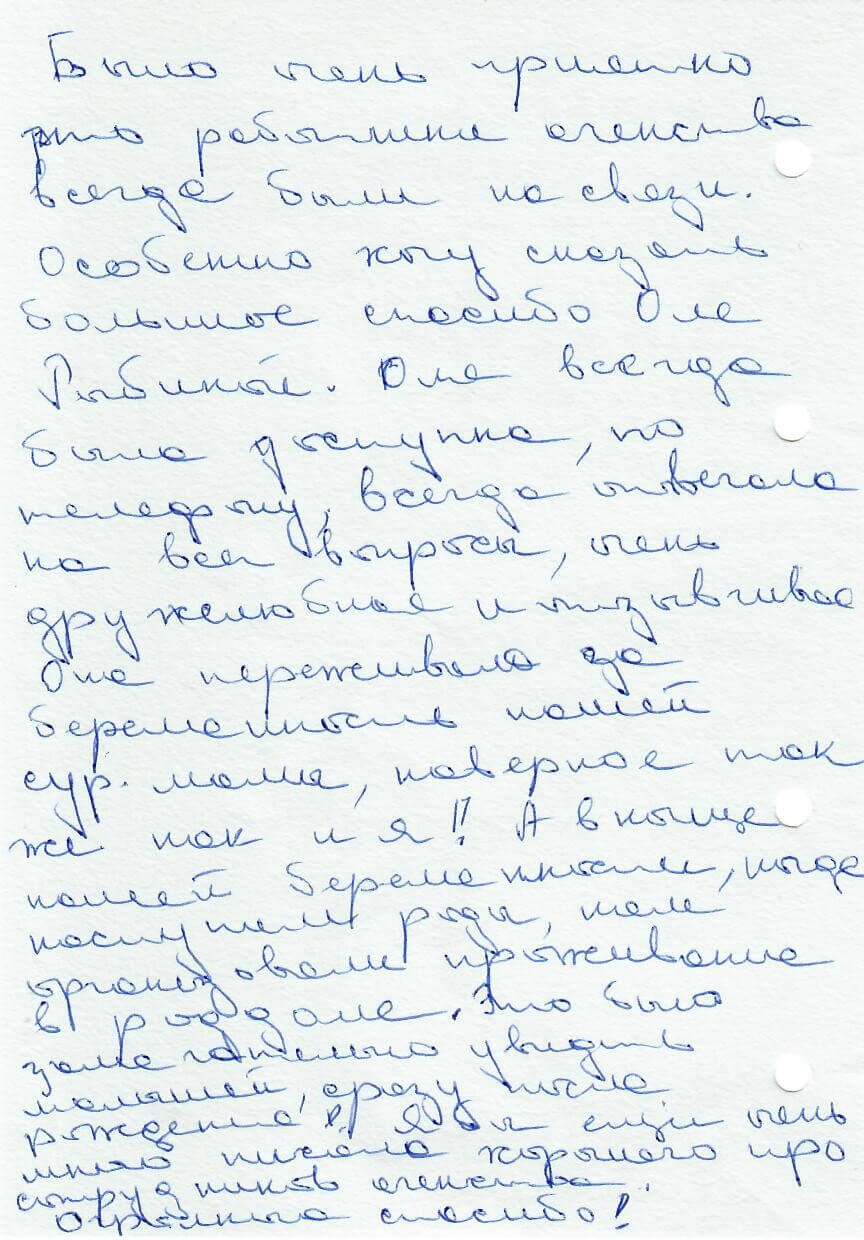 Было очень приятно
что работники агенства
всегда были на связи.
Особенно хочу сказать
большое спасибо Оле
Рыбиной. Она всегда
была доступна, по
телефону, всегда отвечала
на все вопросы, очень
дружелюбная и отзывчивая
Она переживала за
беременность нашей
сур. мамы, наверное так
же как и я!! А в конце
нашей беременности, когда
наступили роды, нам
организовали проживание
в роддоме. Это было
замечательно увидеть
малышей, сразу после
рождения! Я бы еще очень
много писала хорошего про
сотрудников агенства.
Огромное спасибо!